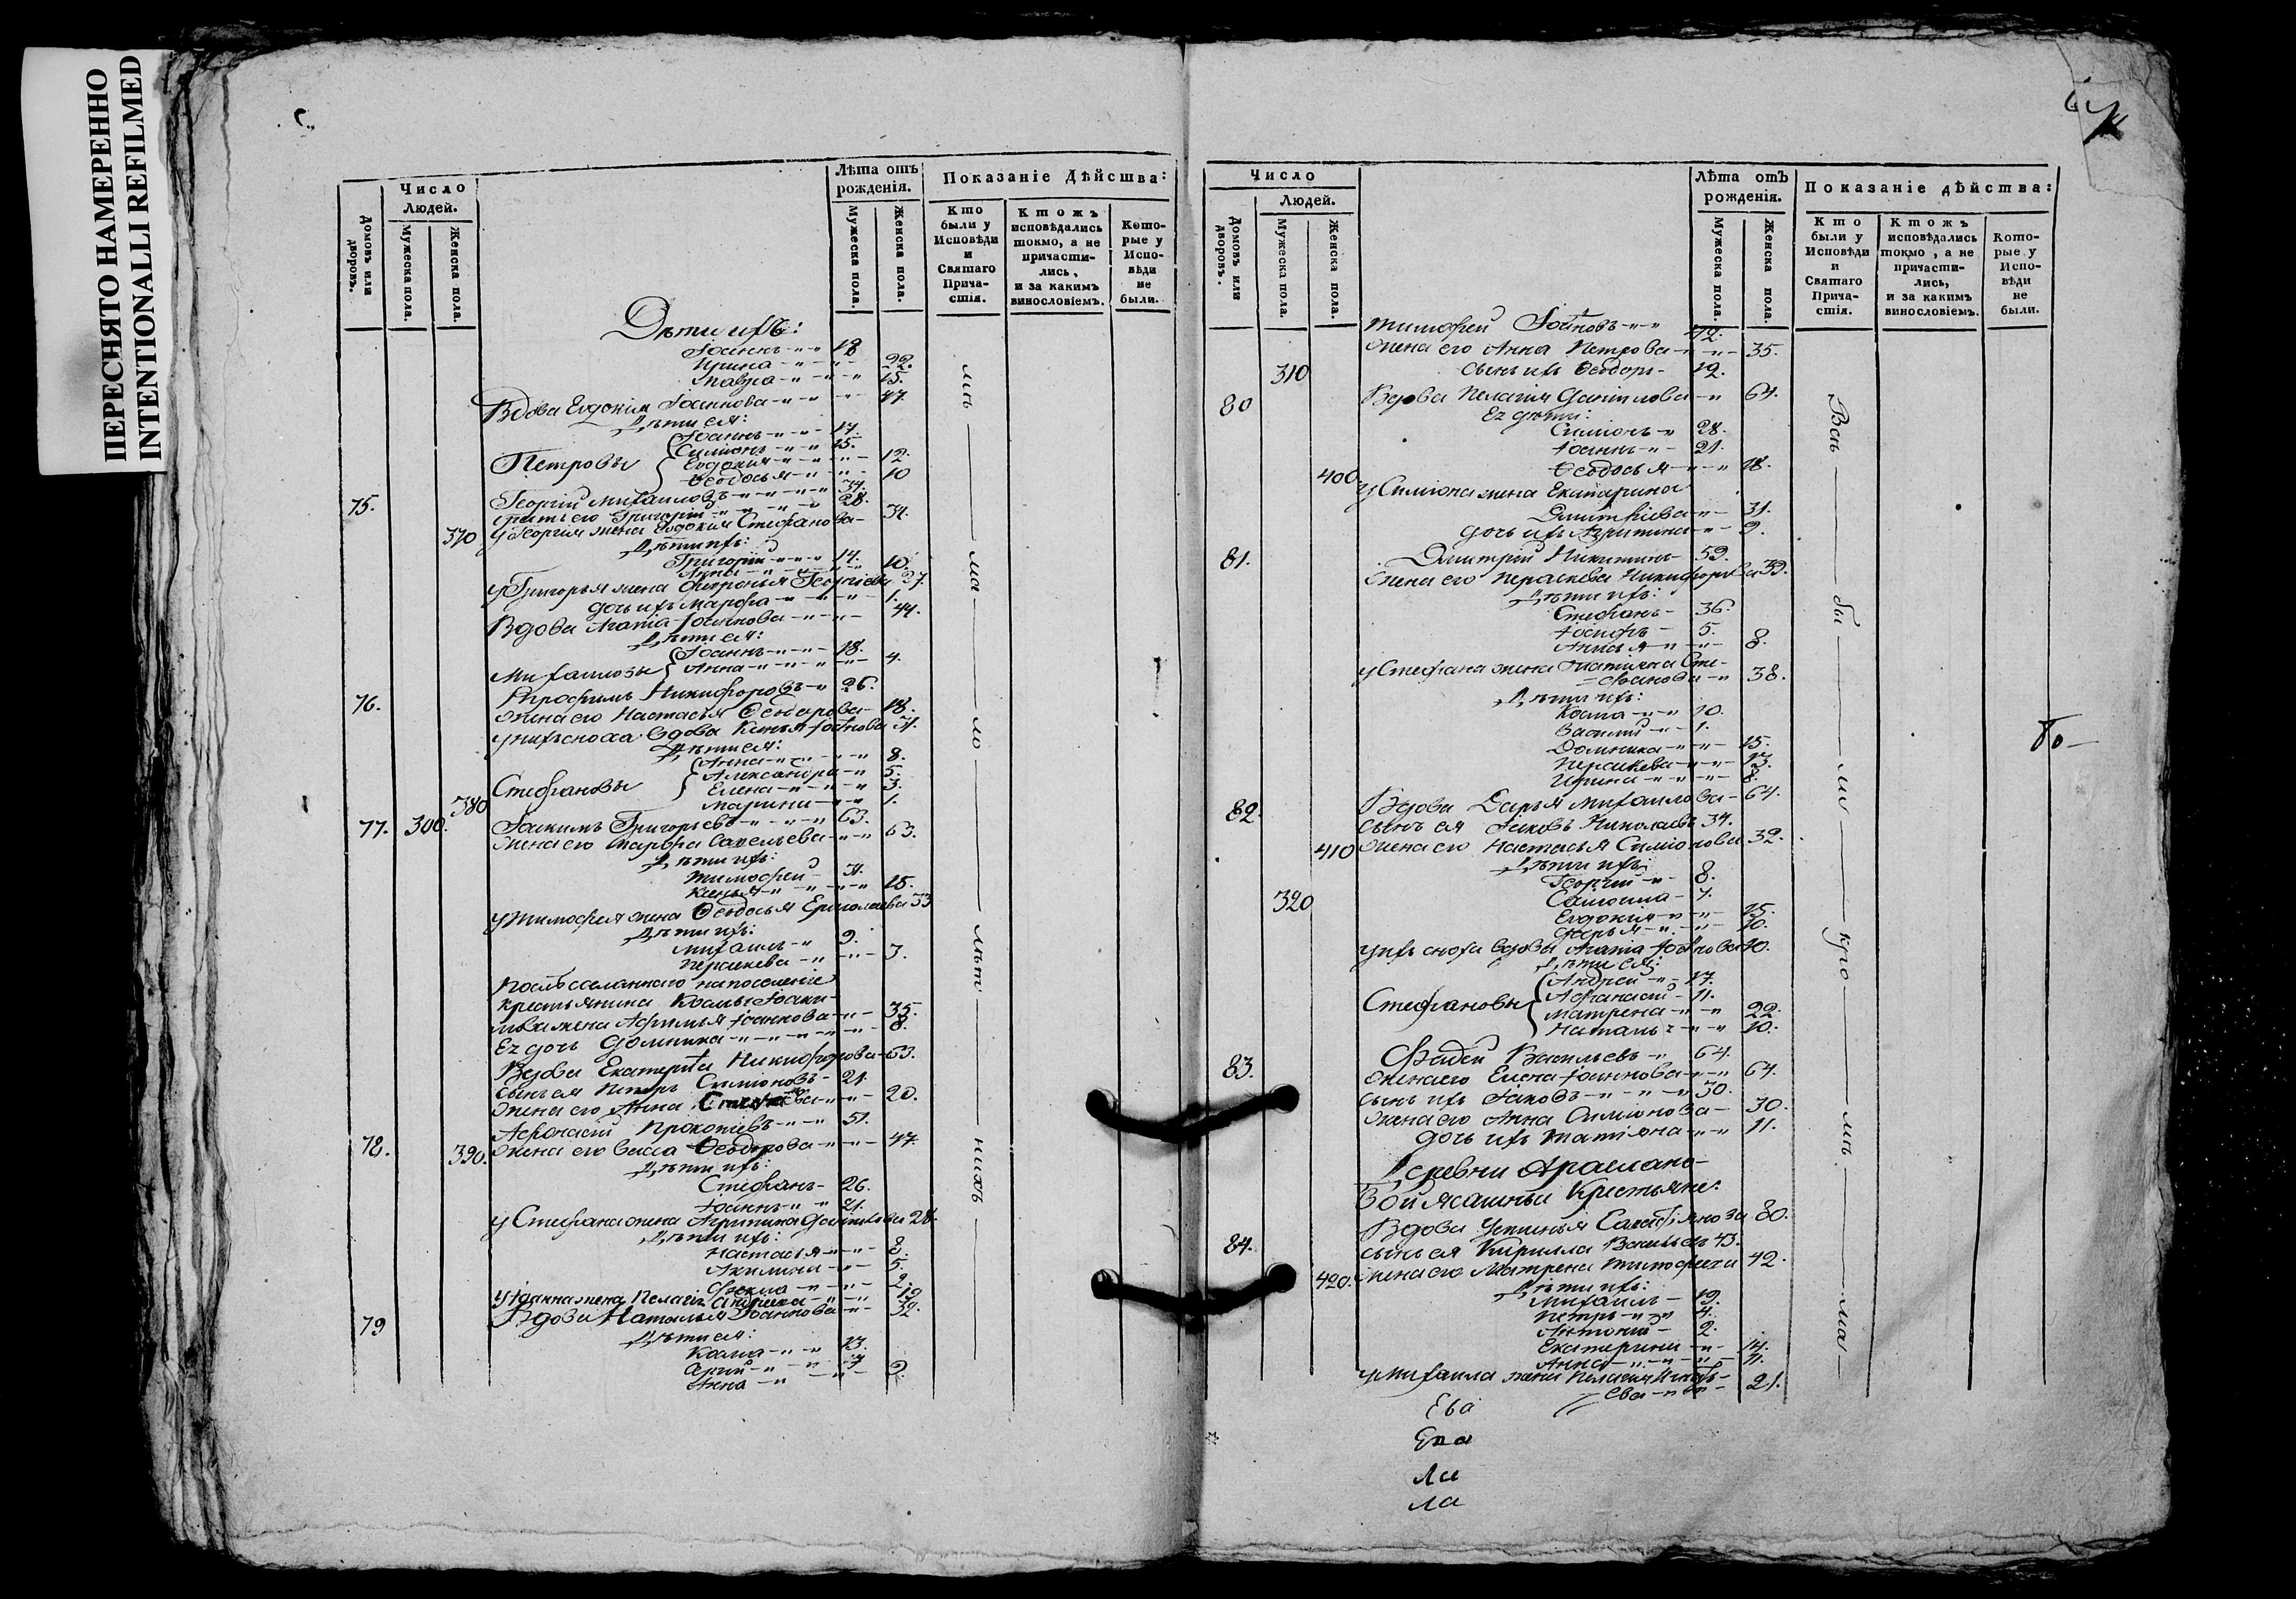 ПЕРЕСНЯТО НАМЕРЕННО
INTENTIONALLI REFILMED
Домовъ или дворовъ.
Число Людей.
Мужеска пола.
Женска пола.
Лѣта отъ рожденія.
Мужеска пола.
Женска пола.
Показаніе Дѣйства:
Кто были у Исповѣди и Святаго Причастія.
Ктожъ исповѣдались токмо, а не причастились, и за какимъ винословіемъ.
Которые у Исповѣди не были.
Дѣти ихъ:
Іоаннъ 18
Ирина 22.
Мавра 15.
Вдова Евдокія Іоаннова 47.
Дѣти ея:
Петровы
Іоаннъ 17.
Симіонъ 15.
Евдокия 12.
Ѳеодосья 10
75. Георгій Михаиловъ 34.
братъ его Григорій 28.
370 у Георгія жена Евдокия Стефанова 34.
Дѣти ихъ:
Григорій 14.
Анна 10.
у Григорья жена Февронья Георгіева 37.
дочь ихъ Марфа 1.
Вдова Агапіа Іоаннова 44.
Дѣти ея:
Михаиловы
Іоаннъ 18.
Анна 4.
76. Трофимъ Никифоровъ 26.
жена его Настасья Ѳеодорова 18.
у нихъ сноха вдова Ксенья Іоаннова 31.
Дѣти ея:
Стефановы
Анна 8.
Александра 5.
Елена 3.
380 Марина 1.
77. 300. Іоакимъ Григорьевъ 63.
жена его Марфа Савельева 63.
Дѣти ихъ:
Тимофей 31.
Ксенья 15.
у Тимофея жена Ѳеодосья Ермолаева 33
Дѣти ихъ:
Михаилъ 9.
Пераскева 3.
Послѣ сосланнаго на поселеніе
крестьянина Космы Іоаки-
мова жена Афимья Іоаннова 35.
Ея дочь Домника 8.
Вдова Екатерина Никифорова 63.
сынъ ея Петръ Симіоновъ 21.
жена его Анна 20.
78. Афонасій Прокопиевъ 51.
390. жена его Васса Ѳеодорова 47.
Дѣти ихъ:
Стефанъ 26.
Іоаннъ 21.
у Стефана жена Агрипина Даниилова 28.
Дѣти ихъ:
Настасья 8.
Акилина 5.
Фекла 2.
у Іоанна жена Пелагія Андреева 19.
79 Вдова Наталья Іоаннова 32.
Дѣти ея:
Косма 13.
7
Анна 2.
Домовъ или дворовъ.
Число Людей.
Мужеска пола.
Женска пола.
Лѣта отъ рожденія.
Мужеска пола.
Женска пола.
Показаніе дѣйства:
Кто были у Исповѣди и Святаго Причастія.
Ктожъ исповѣдались токмо, а не причастились, и за какимъ винословіемъ.
Которые у Исповѣди не были.
Тимофей
жена его Анна Петрова 35.
310 сынъ ихъ Ѳеодоръ 12.
80 Вдова Пелагія Даниилова 64.
Ея дѣти:
Симіонъ 28.
Іоаннъ 21.
400 Ѳеодосья 18.
у Симіона жена Екатерина
Дмитріева 31.
дочь ихъ Агрипина 2.
81. Дмитрій Никитинъ 59.
жена его Пераскева Никифорова 59.
Дѣти ихъ:
Стефанъ 36.
Іосифъ 5.
Анисья 8.
у Стефана жена Татіяна Сте-
фанова 38.
Дѣти ихъ:
Косма 10.
Василій 1.
Домника 15.
Пераскева 13.
Ирина 8.
82. Вдова Дарья Михаилова 64.
сынъ ея Іаковъ Николаевъ 34.
410 жена его Настасья Симіонова 32.
Дѣти ихъ:
Георгій 8.
320
Евдокия 15.
Дарья 10.
у нихъ сноха вдова Агапіа Іоаннова 40.
Дѣти ея:
Стефановы
Андрей 17.
Афанасій 11.
Матрена 22.
Наталья 10.
83. Фадей Васильевъ 64.
жена его Елена Іоаннова 64.
сынъ ихъ Іаковъ 30.
жена его Анна Симионова 30.
дочь ихъ Татіяна 11.
Деревни Арасланъ-
Вдова Устинья 80.
84. сынъ ея Кирилла Васильевъ 43.
420. жена его Матрена Тимофеева 42.
Дѣти ихъ:
Михаилъ 19.
Петръ 4.
Антоній 2.
Екатерина 14.
Анна 11.
у Михаила жена Пелагия Игнать-
ева 21.
Всѣ были кромѣ малолѣтнихъ
Ева
Ла